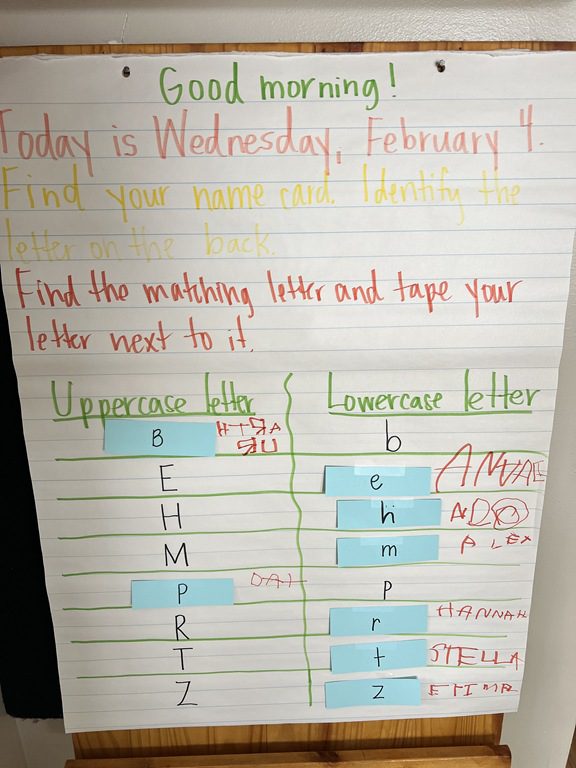 Good morning!
Today is Wednesday, February 4.
Find your name card. Identify the
letter on the back.
Find the matching letter and tape your
letter next to it.
Uppercase letter Lowercase letter
B b
E e
H h
M m ALEX
P p
R r HANNAH
T t STELLA
Z z